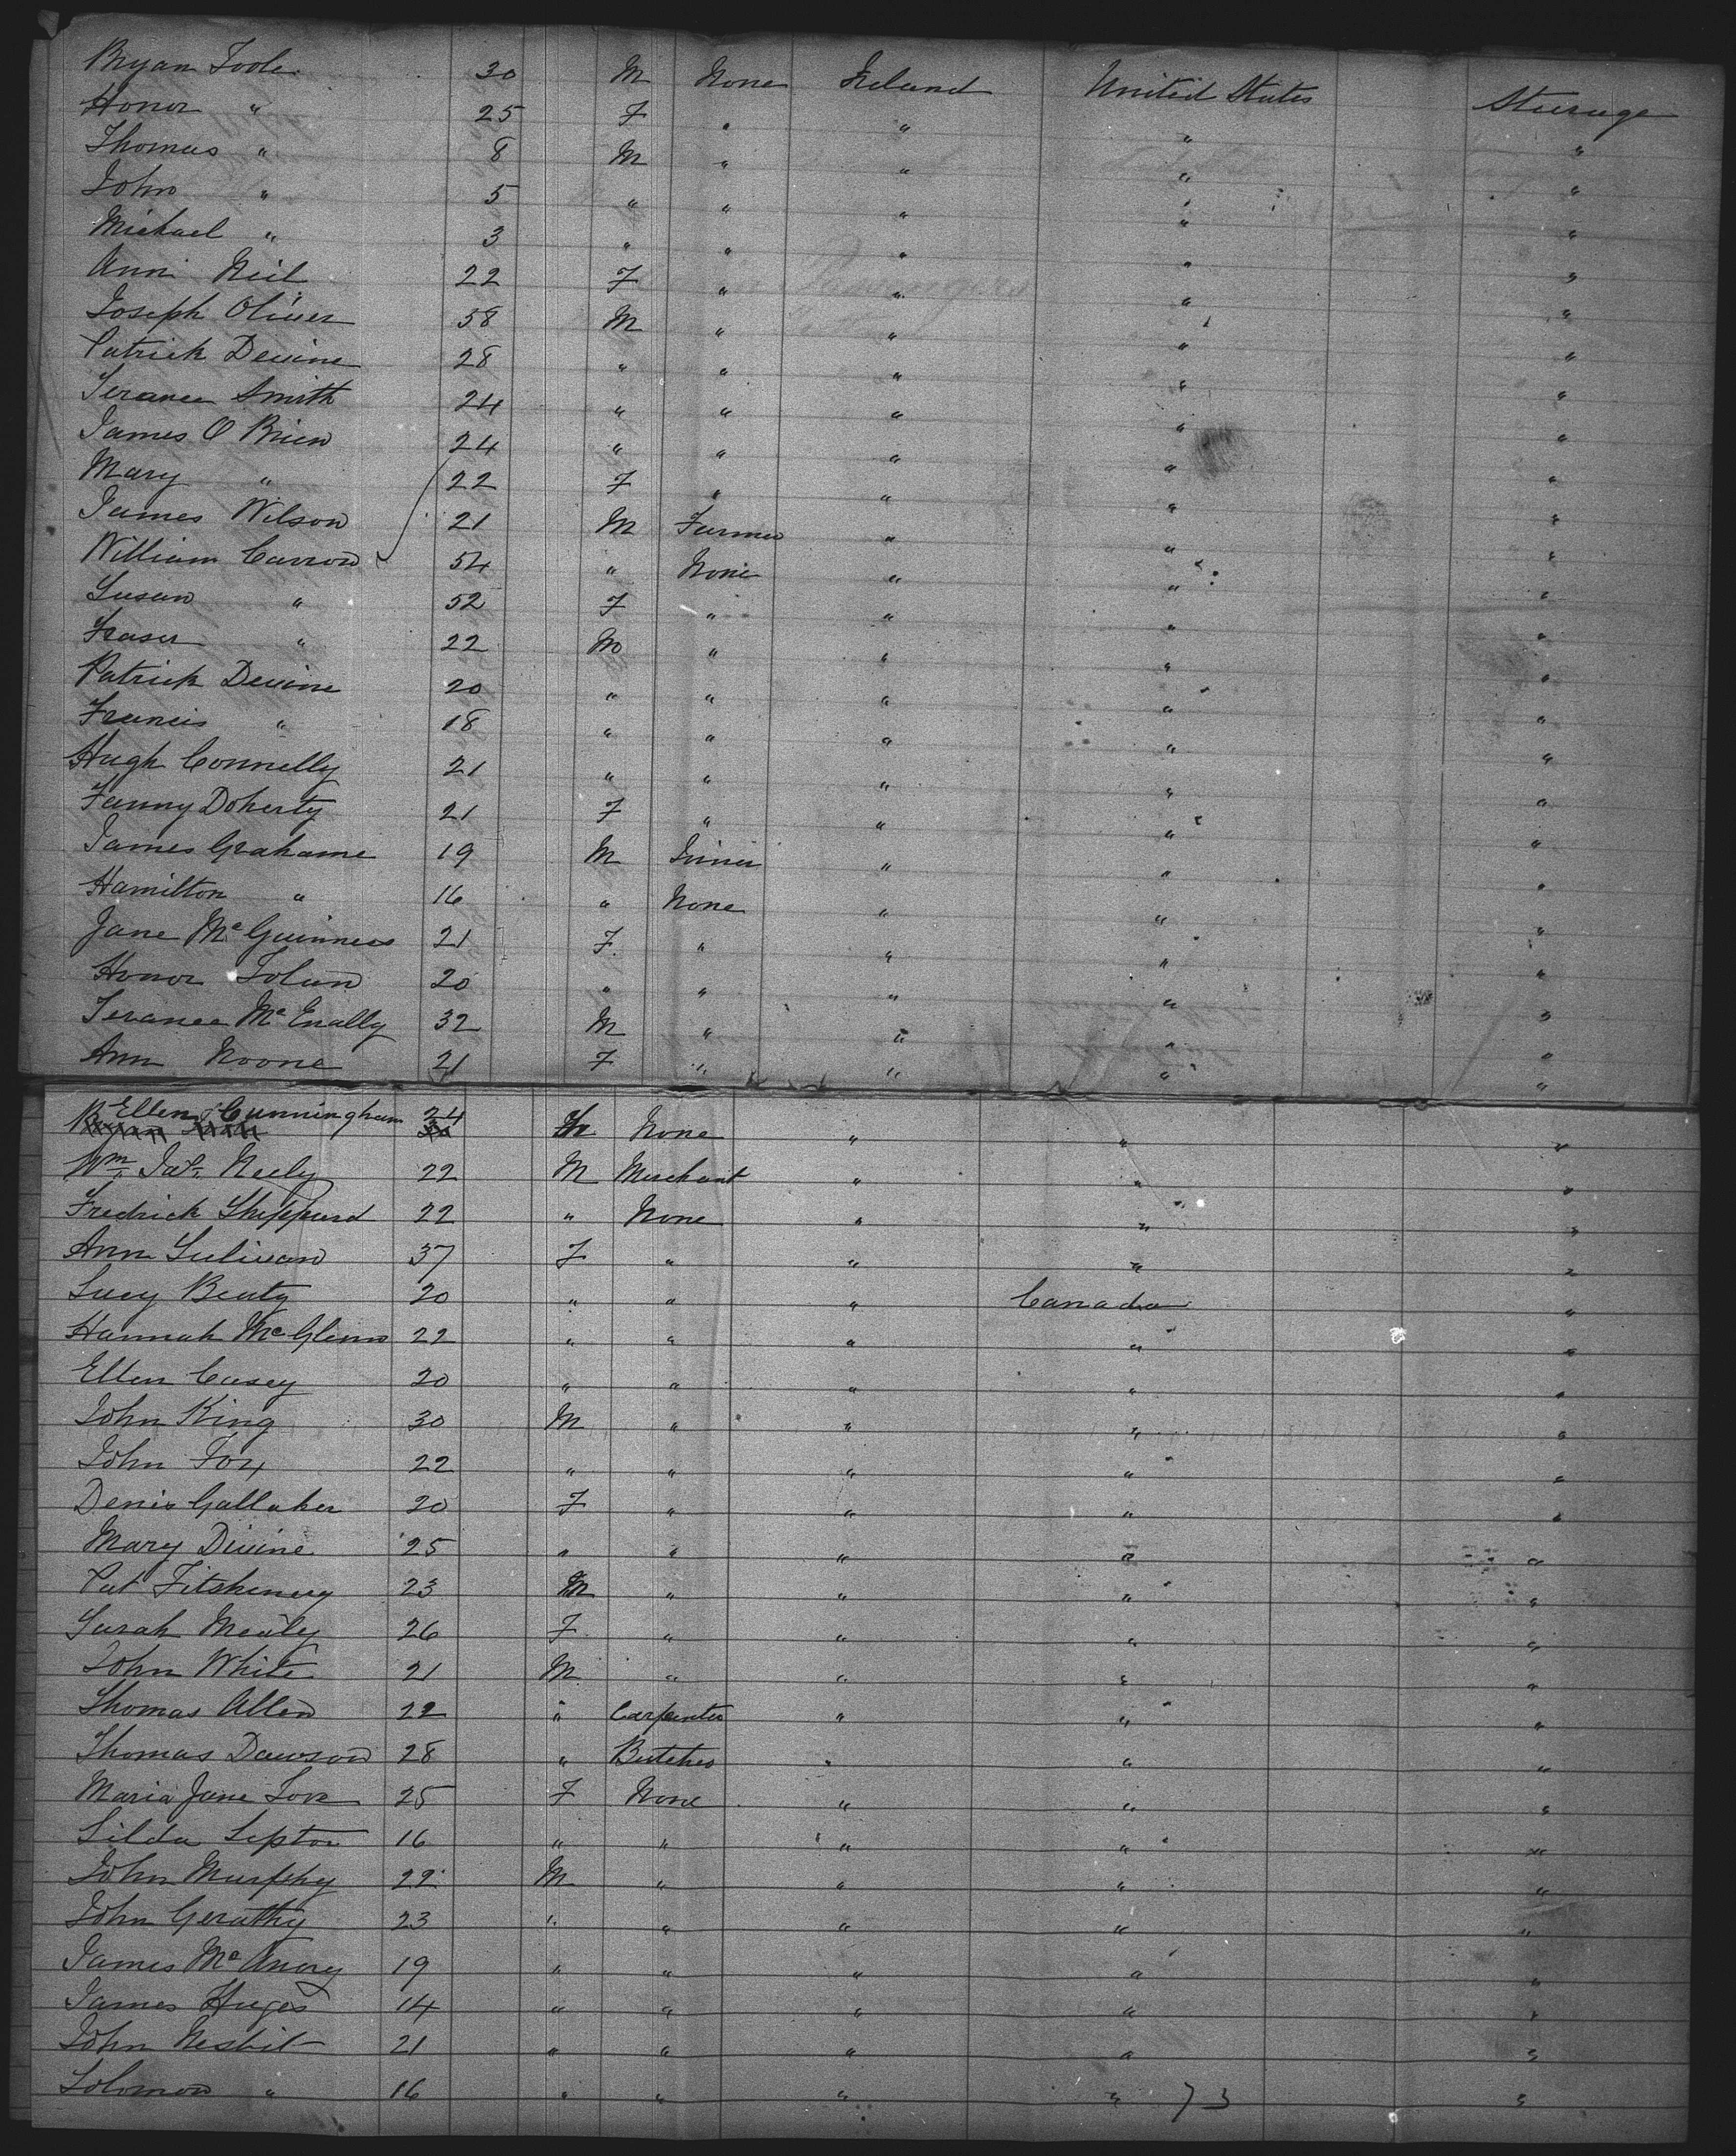 Bryan Toole 30 M None Ireland United States Steerage
Honor " 25 F " " " "
Thomas " 8 M " " " "
John " 5 " " " " "
Michael " 3 " " " " "
Ann Neil 22 F " " " "
Joseph Oliver 58 M " " " "
Patrick Devine 28 " " " " "
Terance Smith 24 " " " " "
James O Brien 24 " " " " "
Mary " 22 F " " " "
James Wilson 21 M Farmer " " "
William Carrow 54 " None " " "
Susan " 52 F " " " "
Fraser " 22 M " " " "
Patrick Devine 20 " " " " "
Francis " 18 " " " " "
Hugh Connelly 21 " " " " "
Fanny Doherty 21 F " " " "
James Grahame 19 M Joiner " " "
Hamilton " 16 " None " " "
Jane McGuinness 21 F " " " "
Honor Tolan 20 " " " " "
Terance McEnally 32 M " " " "
Ann Noone 21 F " " " "
Ellen Cunningham 24 None " " "
Wm Jas. Neely 22 M Merchant " " "
Fredrick Sheppard 22 " None " " "
Ann Sulivan 37 F " " " "
Lucy Beaty 20 " " " Canada "
Hannah McGlinn 22 " " " " "
Ellen Casey 20 " " " " "
John King 30 M " " " "
John Fox 22 " " " " "
Denis Gallaher 20 F " " " "
Mary Divine 25 " " " " "
Pat Fitshenery 23 M " " " "
Sarah Mealy 26 F " " " "
John White 21 M " " " "
Thomas Allen 22 " Carpenter " " "
Thomas Dawson 28 " Butcher " " "
Maria Jane Love 25 F None " " "
Lilda Lipton 16 " " " " "
John Murphy 22 M " " " "
John Gerathy 23 " " " " "
James McAnory 19 " " " " "
James Huges 14 " " " " "
John Nesbit 21 " " " " "
Solomon " 16 " " " " 73 "